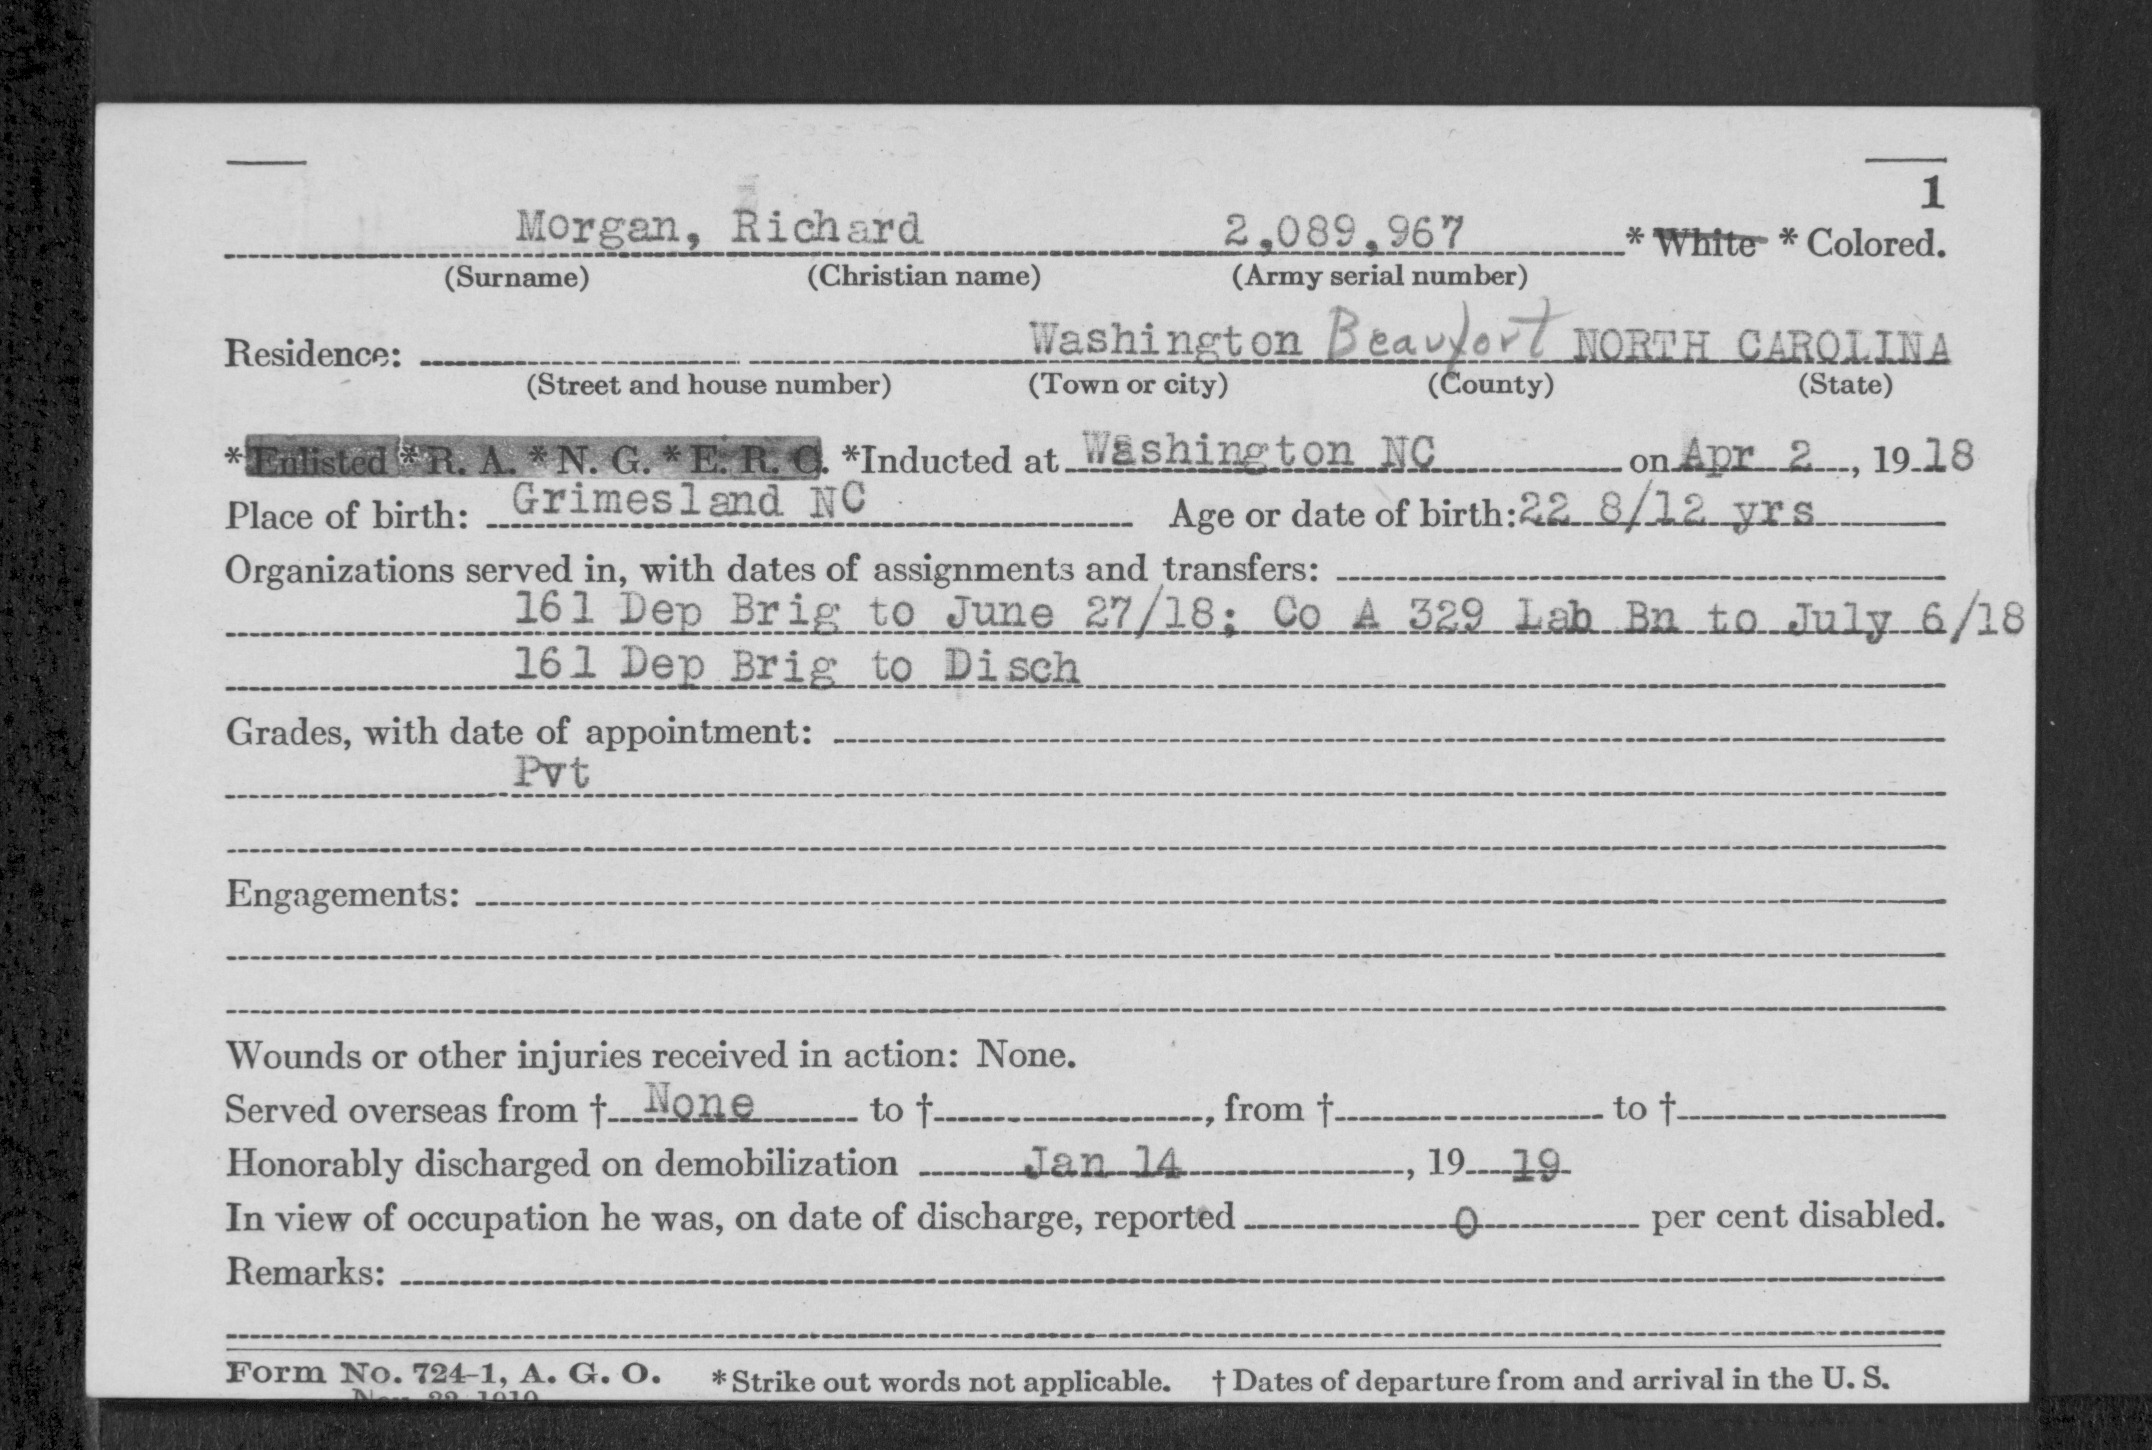 1
Morgan, Richard 2,089,967 * White * Colored.
(Surname) (Christian name) (Army serial number)
Residence: Washington Beaufort NORTH CAROLINA
(Street and house number) (Town or city) (County) (State)
*Enlisted *R. A. *N. G. *E. R. C. *Inducted at Washington NC on Apr 2, 1918
Place of birth: Grimesland NC Age or date of birth: 22 8/12 yrs
Organizations served in, with dates of assignments and transfers:
161 Dep Brig to June 27/18; Co A 329 Lab Bn to July 6/18
161 Dep Brig to Disch
Grades, with date of appointment:
Pvt
Engagements:
Wounds or other injuries received in action: None.
Served overseas from † None to †, from † to †
Honorably discharged on demobilization Jan 14, 19 19
In view of occupation he was, on date of discharge, reported 0 per cent disabled.
Remarks:
Form No. 724-1, A. G. O. *Strike out words not applicable. † Dates of departure from and arrival in the U. S.